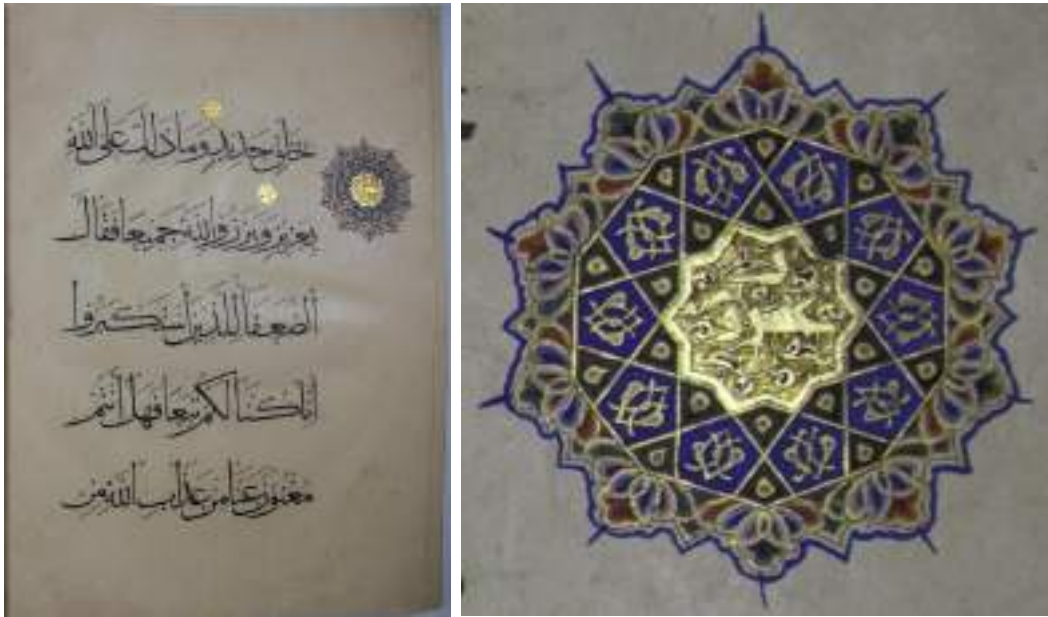 بخلق جديد وما ذلك على الله
بعزيز وبرزوا لله جميعا فقال
الضعفا للذين استكبروا
انا كنا لكم تبعا فهل انتم
مغنون عنا من عذاب الله من